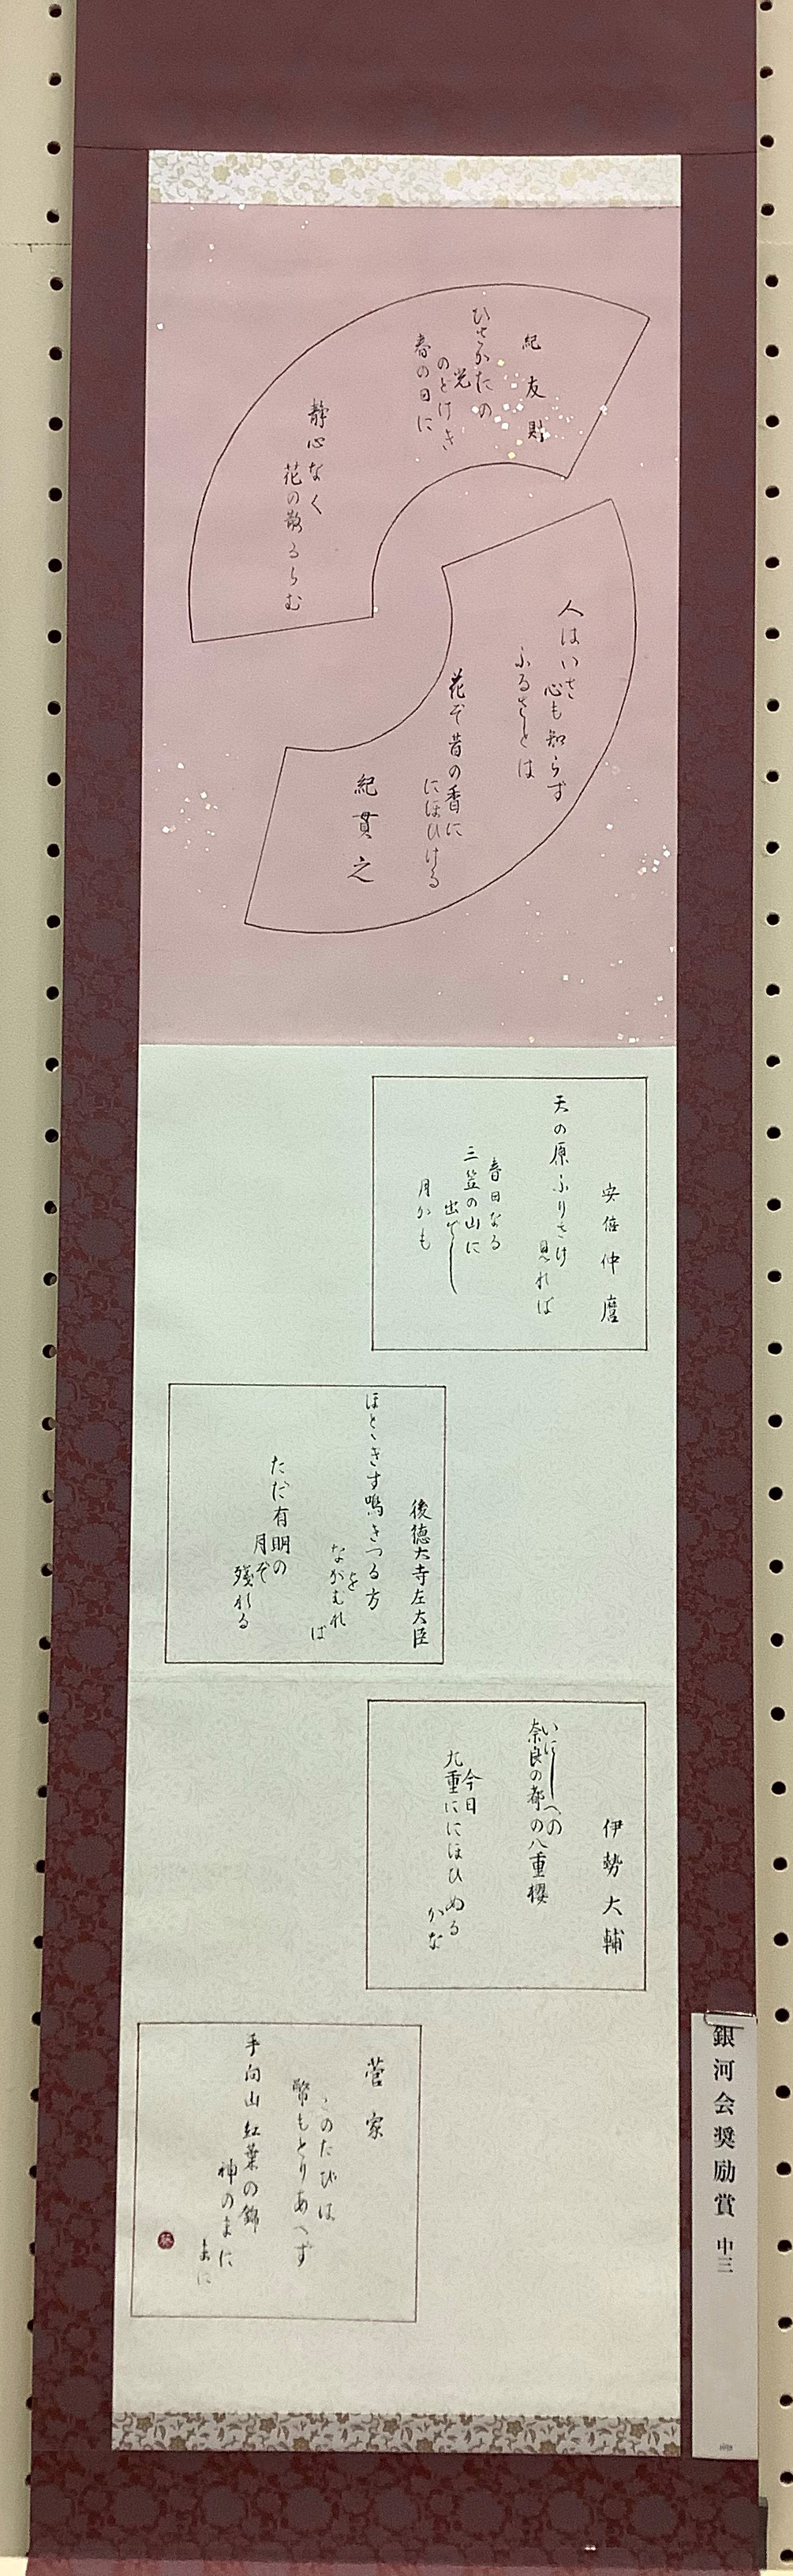 紀友則
ひさかたの
光
のどけき
春の日に
静心なく
花の散るらむ
人はいさ
心も知らず
ふるさとは
花ぞ昔の香に
にほひける
紀貫之
安倍仲麿
天の原ふりさけ
見れば
春日なる
三笠の山に
出でし
月かも
後徳大寺左大臣
ほとゝぎす鳴きつる方
を
ながむれ
ば
ただ有明の
月ぞ
残れる
伊勢大輔
いにしへの
奈良の都の八重櫻
今日
九重ににほひぬる
かな
菅家
このたびは
幣もとりあへず
手向山紅葉の錦
神のまに
まに
銀河会奨励賞 中三